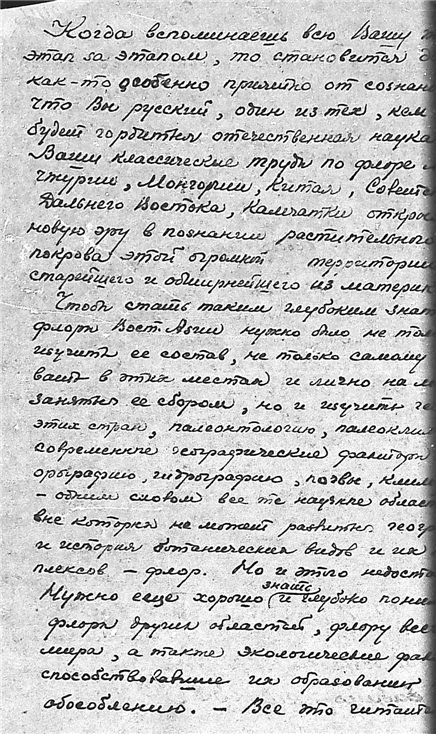 Когда вспоминаешь всю Вашу
этап за этапом, то становится
как-то особенно приятно от созна
что Вы русский, один из тех, кем
будет гордиться отечественная наука
Ваши классические труды по флоре
чжурии, Монголии, Китая, Советс
Дальнего Востока, Камчатки откры
новую эру в познании растительног
покрова этой огромной территории
старейшего и обширнейшего из материк
Чтобы стать таким глубоким знат
флоры Вост. Азии нужно было не тол
изучить ее состав, не только самому
вать в этих местах и лично на м
заняться ее сбором, но и изучить ге
этих стран, палеонтологию, палеокли
современные географические факторы
орографию, гидрографию, почвы, клим
– одним словом все те научные облас
вне которых не может развиться геогр
и история ботанических видов и их
плексов – флор. Но и этого недоста
Нужно еще хорошо знать и глубоко пони
флоры других областей, флору все
мира, а также экологические фак
способствовавшие их образованию
обособлению. – Все это читает